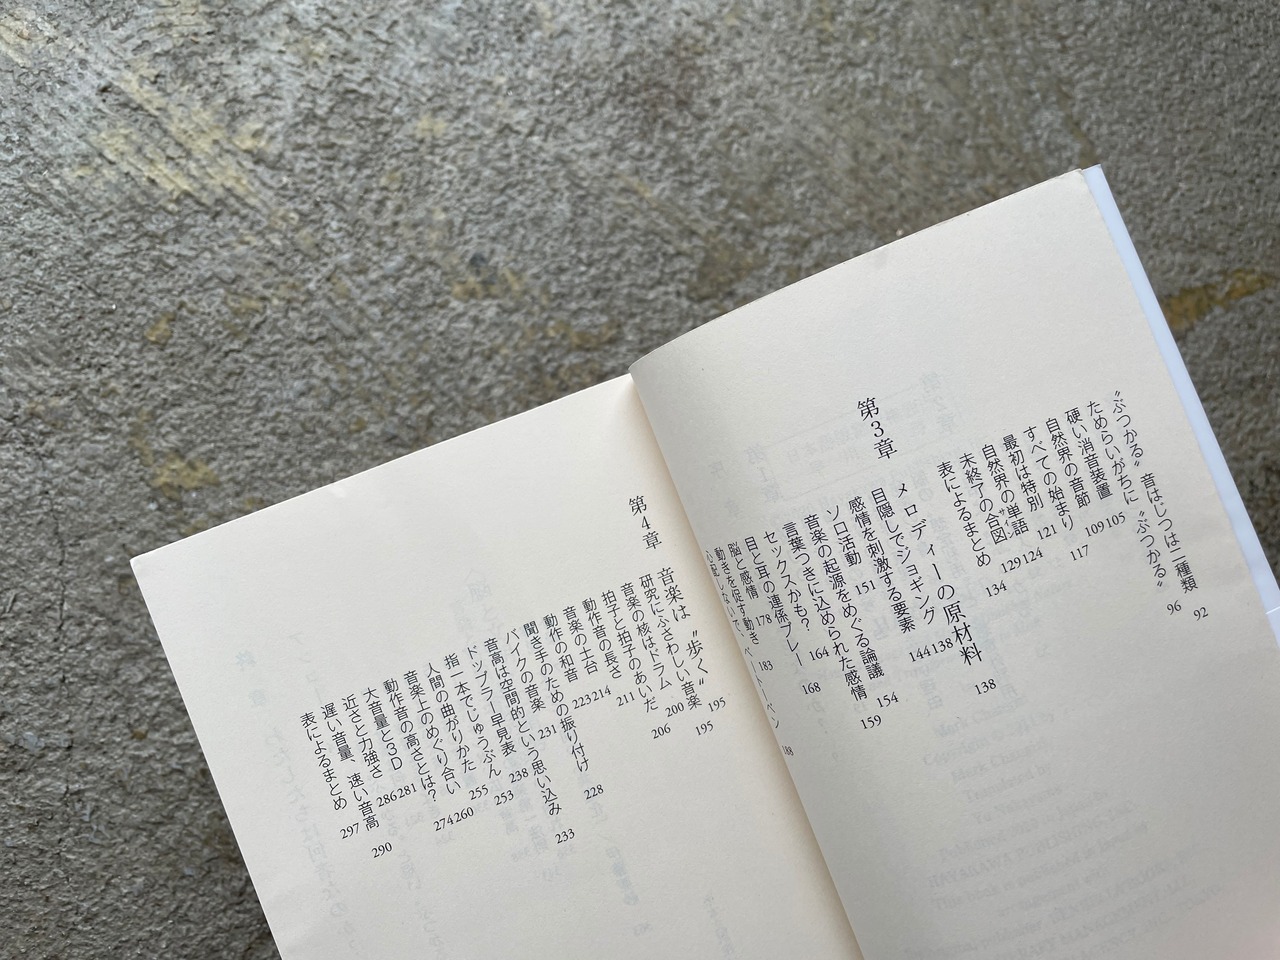 “ぶつかる” 音はじつは二種類 92
ためらいがちに “ぶつかる” 96
硬い消音装置 105
自然界の音節 109
すべての始まり 117
最初は特別 121
自然界の単語 124
未終了の合図 129
サイン
表によるまとめ 134
第3章 メロディーの原材料 138
目隠しでジョギング 138
感情を刺激する要素 144
ソロ活動 151
音楽の起源をめぐる論議 154
言葉つきに込められた感情 159
セックスかも？ 164
目と耳の連係プレー 168
脳と感情 178
動きを促す動き 183
心配しないで、ベートーベン 188
第4章 音楽は “歩く” 195
研究にふさわしい音楽 195
音楽の核はドラム 200
拍子と拍子のあいだ 206
動作音の長さ 211
音楽の土台 214
動作の和音 223
聞き手のための振り付け 228
バイクの音楽 231
音高は空間的という思い込み 233
ドップラー早見表 238
指一本でじゅうぶん 253
人間の曲がりかた 255
音楽上のめぐり合い 260
動作音の高さとは？ 274
大音量と3D 281
近さと力強さ 286
遅い音量、速い音高 290
表によるまとめ 297